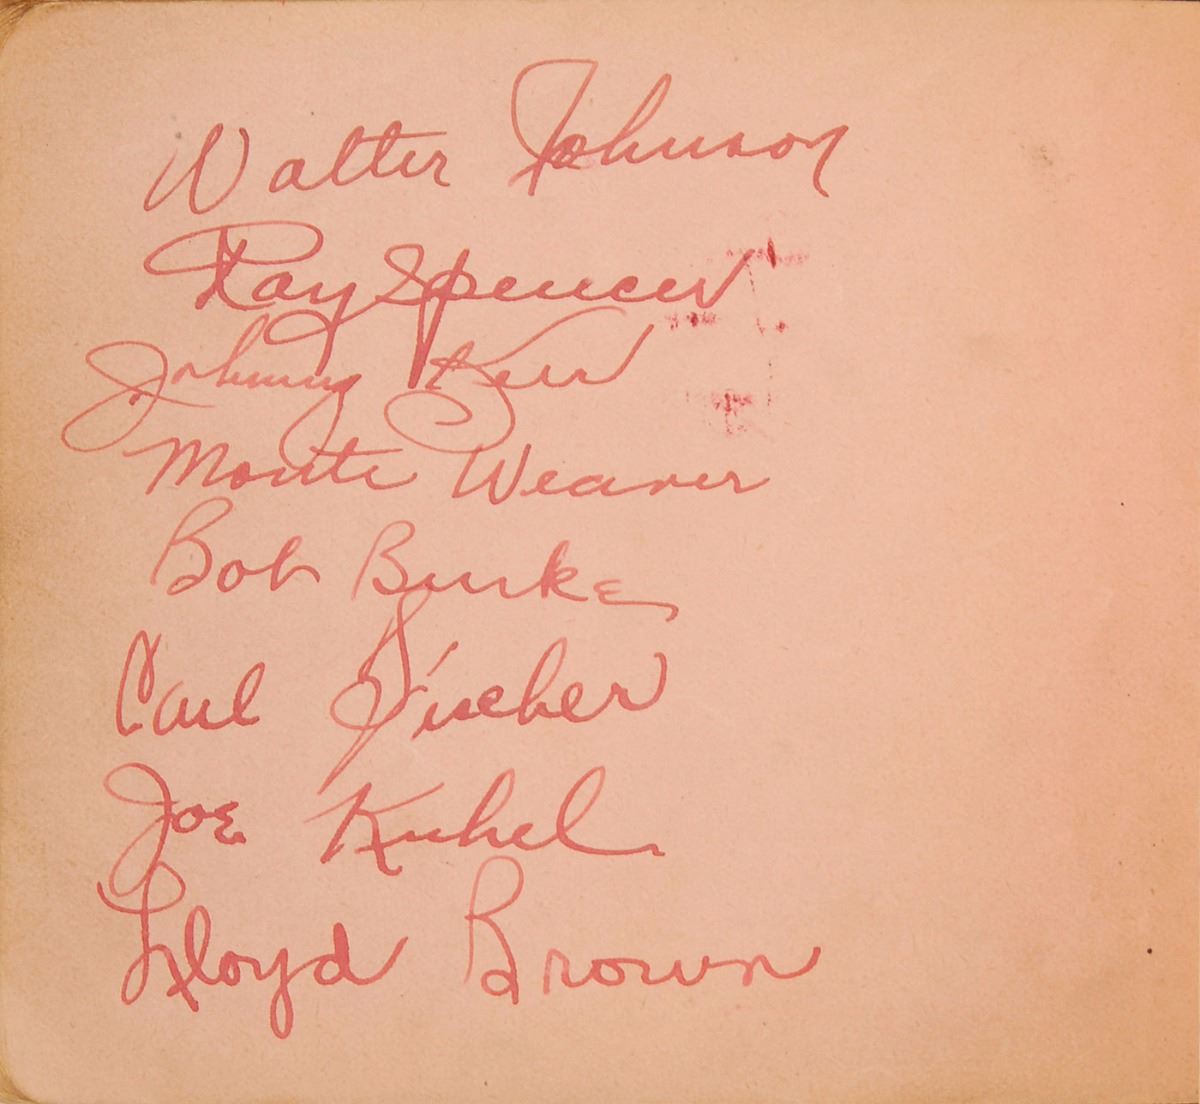 Walter Johnson
Ray Spencer
Johnny Kerr
Monte Weaver
Bob Burke
Carl Fischer
Joe Kuhel
Lloyd Brown